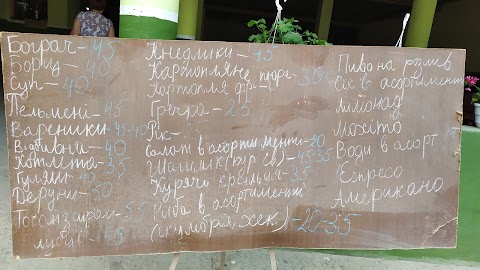 Бограч-45
Борщ-40
Суп-40
Пельмені-45
Вареники-45-40
Відбивні-40
Котлета-35
Гуляш-40
Деруни-50
Токан з сиром-55
45
Кнедлики-45
Картопляне пюре-30
Картопля фрі-
Гречка-25
Рис-25
Салат в асортименті-20
Шашлик (кур св)-45-35
Курячі крильця-35
Риба в асортименті
(скумбрія, хек)-20-35
Пиво на розлив
Сік в асортименті
Лімонад
Мохіто
Води в асорт
Еспресо
Американо